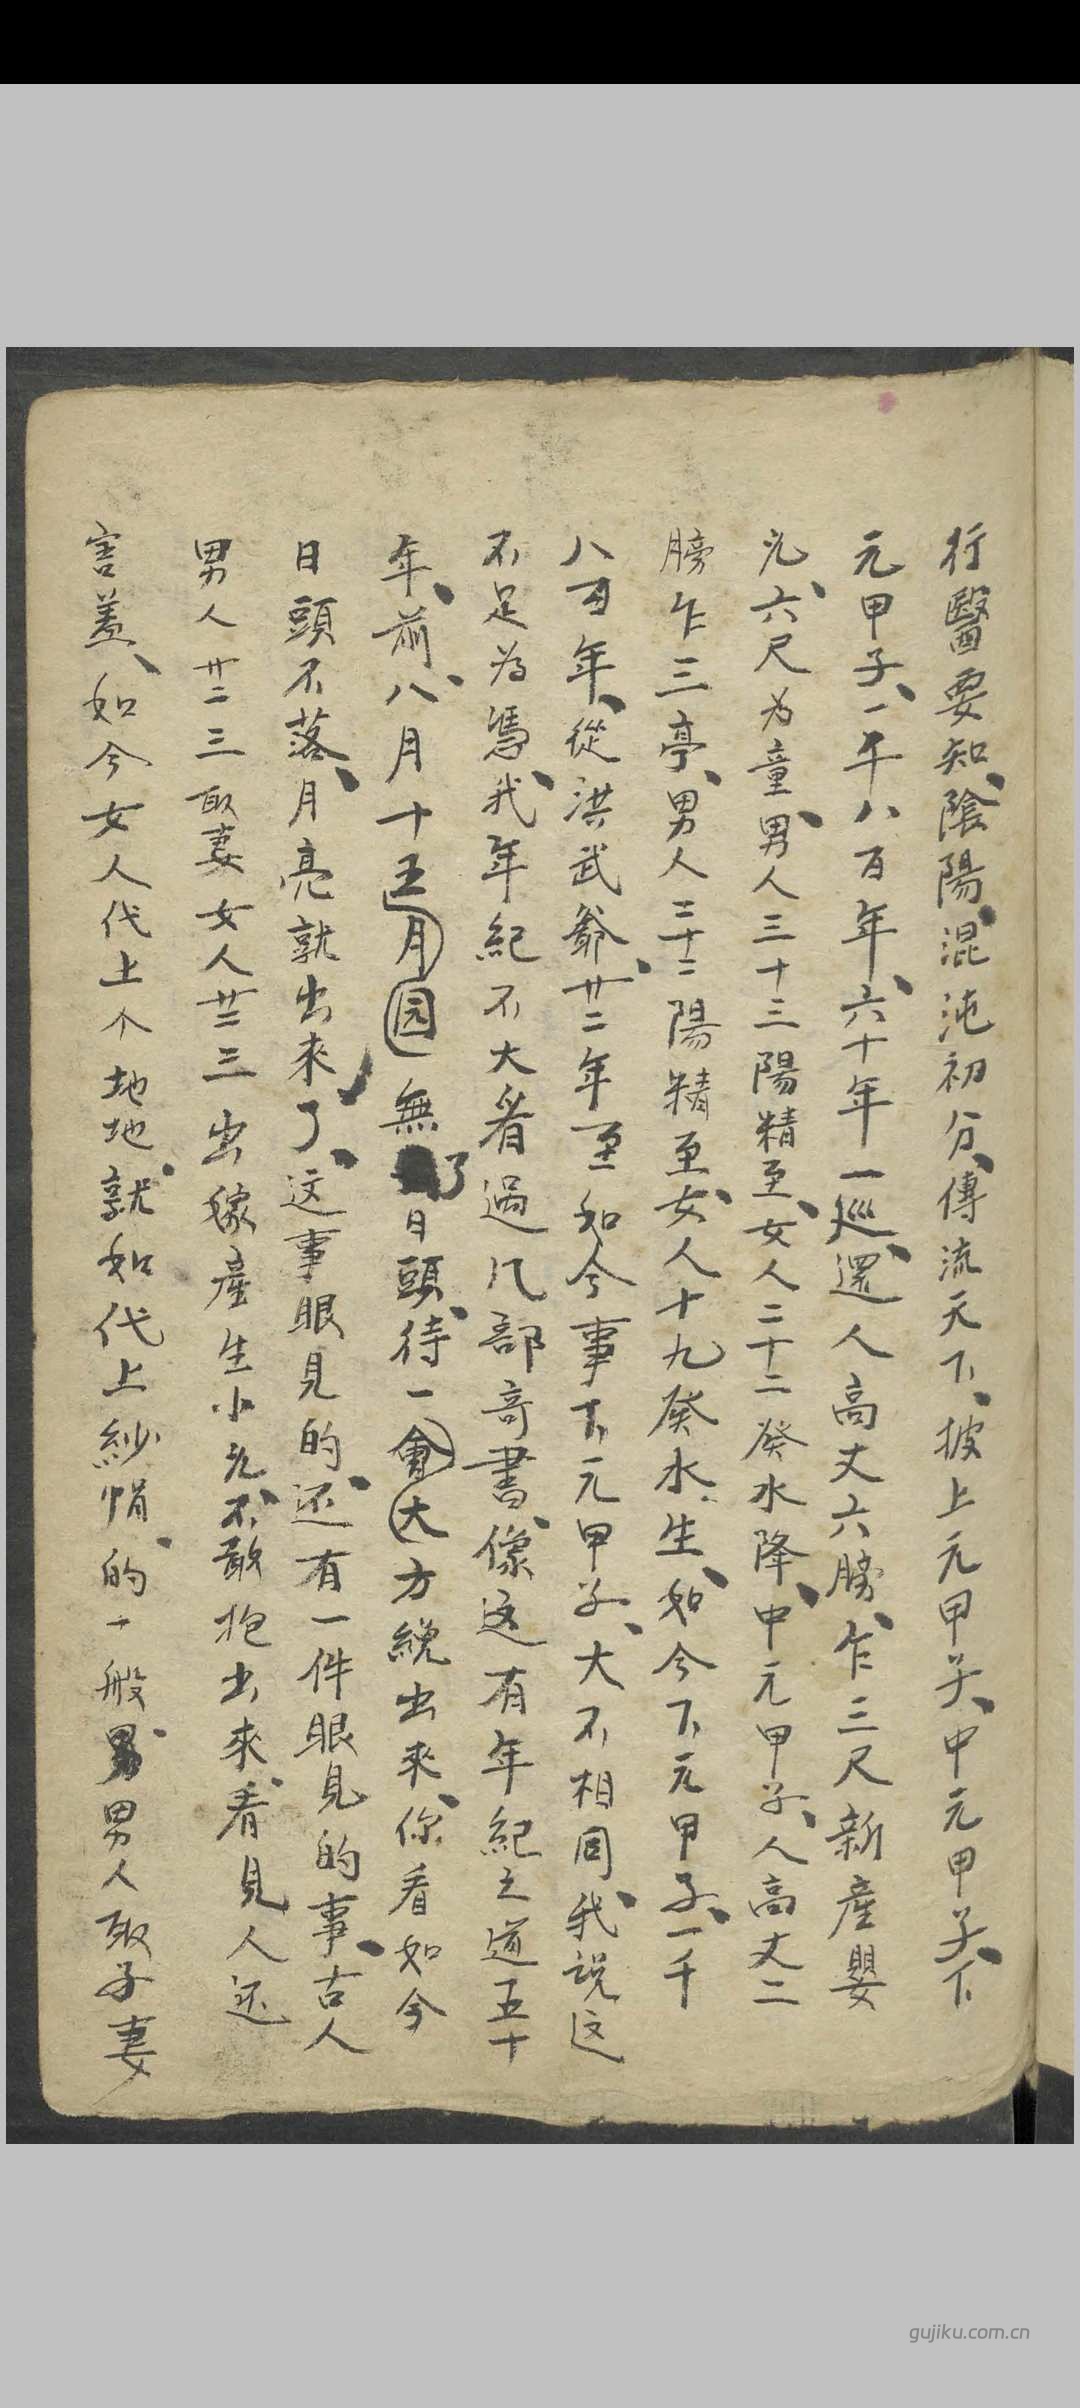 行醫要知陰陽混沌初分傳流天下披上元甲子中元甲子下
元甲子一千八百年六十年一巡還人高丈六膀乍三尺新產嬰
児六尺为童男人三十三陽精至女人二十二癸水降中元甲子人高丈二
膀乍三亭男人二十二陽精至女人十九癸水生如今下元甲子一千
八百年從洪武爺廿二年至如今事下元甲子大不相同我説这
不足为馮我年紀不大看過几部奇書像这有年紀之道五十
年前八月十五月园無了日頭待一會大方纔出來你看如今
日頭不落月亮就出來了这事眼見的还有一件眼見的事古人
男人廿二三取妻女人廿二三出嫁產生小児不敢抱出來看見人还
害羞如今女人代上个地地就如代上紗帽的一般男人取子妻
gujiku.com.cn